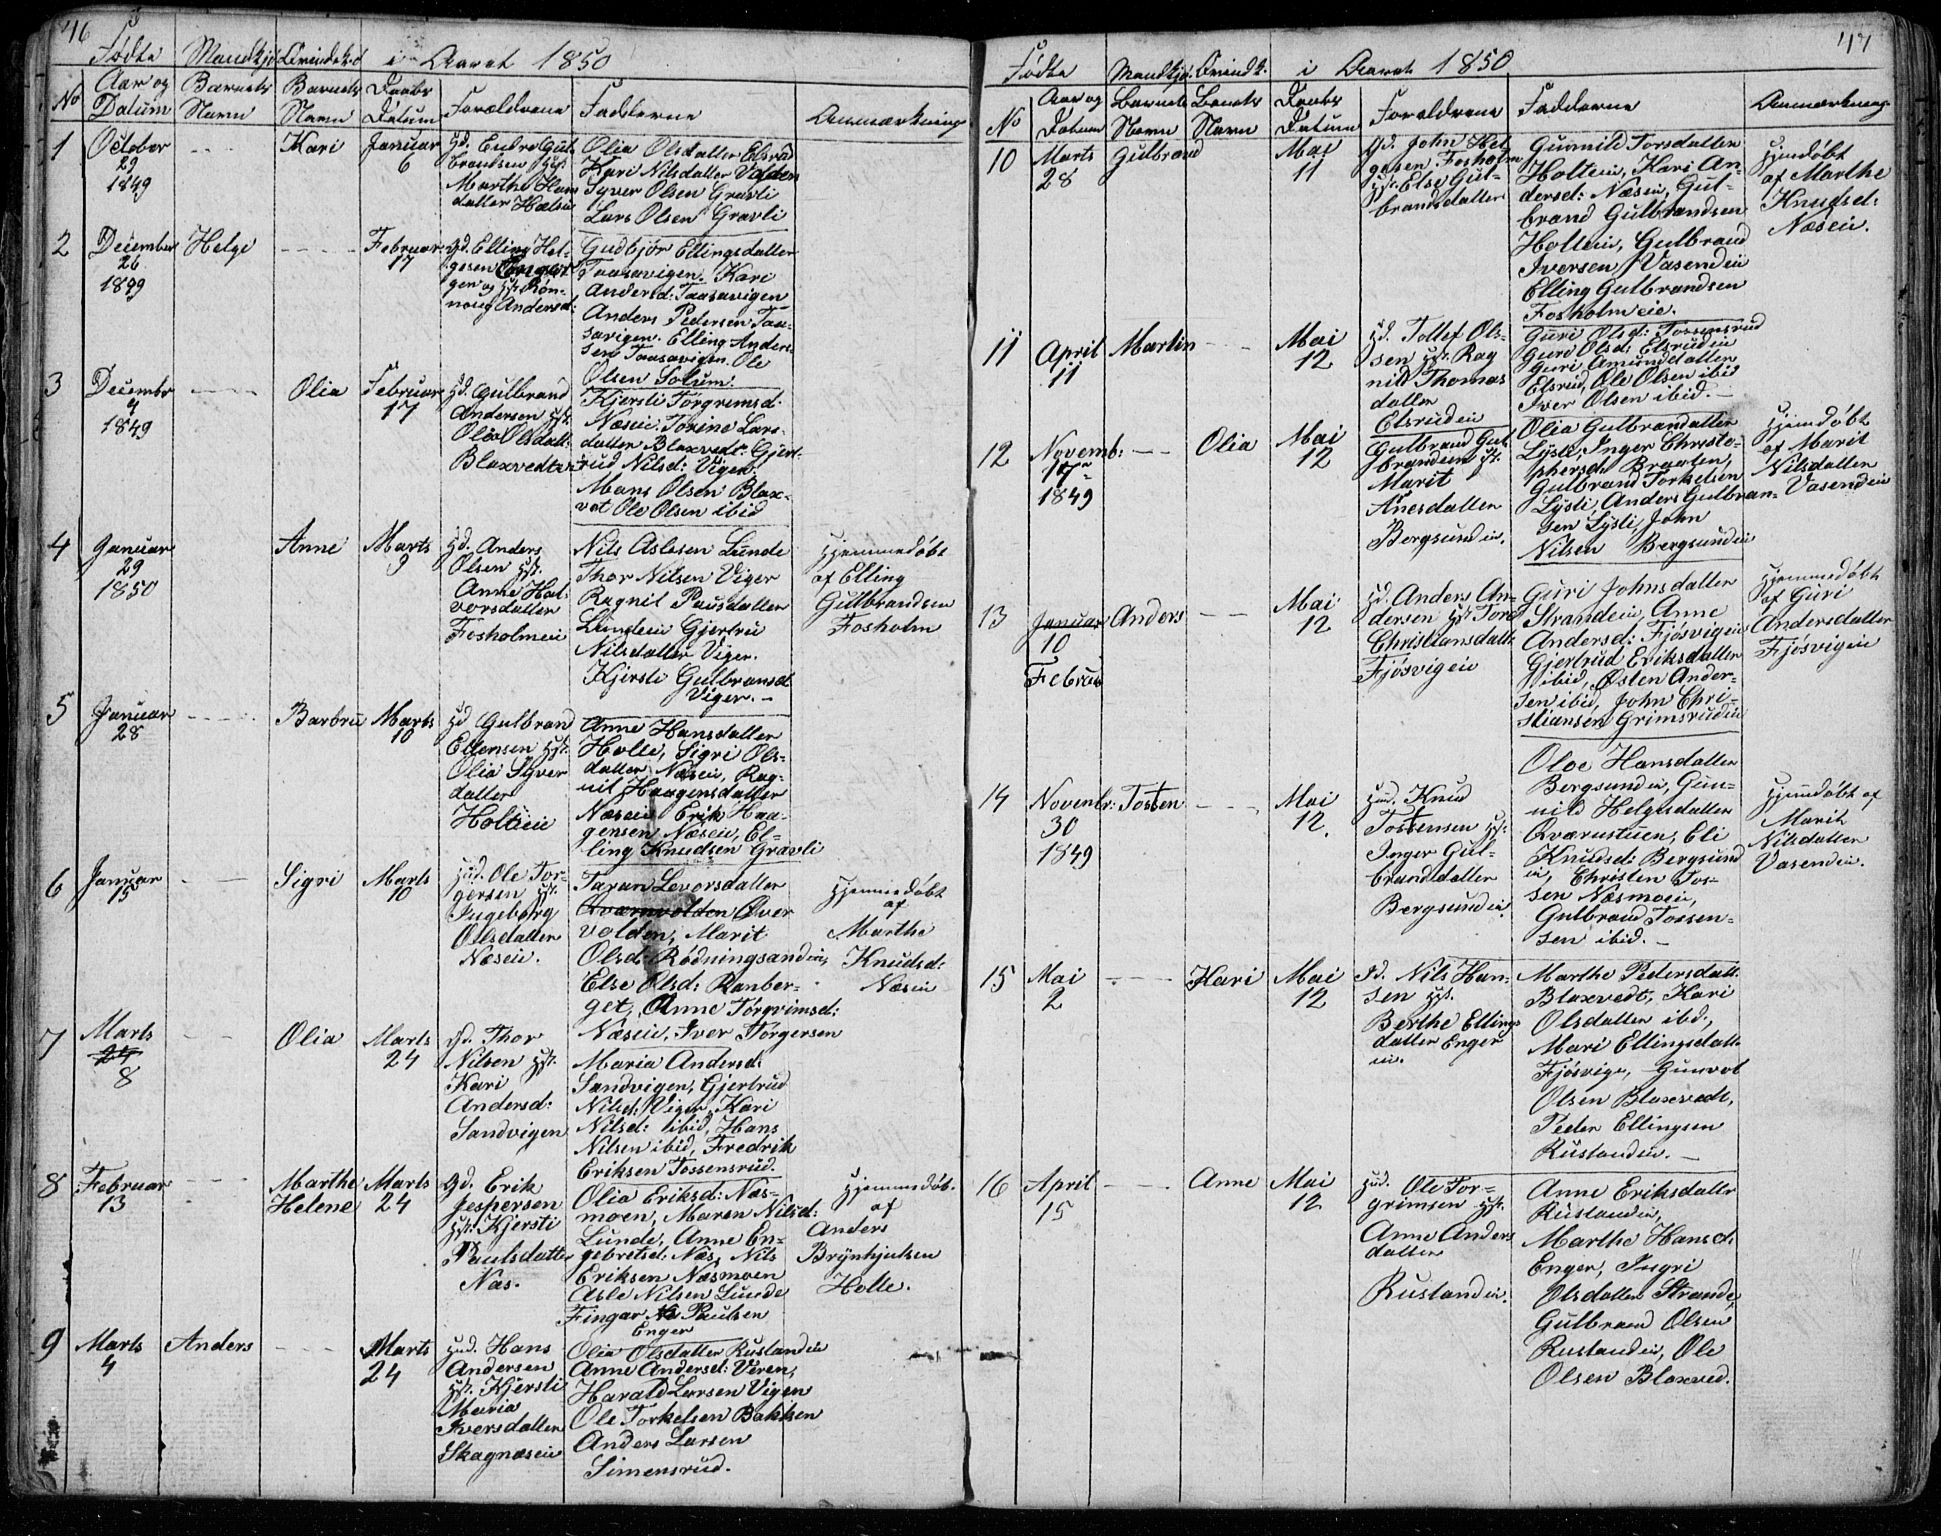 46
Fødte Mandkjø Qvindek. i Aaret 1850
No Aar og Datum Barnets Navn Barnets Navn Daabs Datum Forældrene Fadderne Anmærkning
1 October 29 1849 - - - Kari Januar 6
Marthe Hans
datter
Olia Olsdatter Elsrud
Kari Nilsdatter
Syver Olsen Gravli
Lars Olsen Gravli
2 December 26 1849 Helge - - - Februar 17
Elling Hel-
gesen
gen og Røn-
noug Andersd:
Gudbjør Ellingsdatter
Taasavigen. Kari
Andersd: Taasavigen
Anders Pedersen Taa-
savigen. Elling Anders-
sen Taasavigen. Ole
Olsen Solum.
3 Decembr 4 1849 - - - Olia Februar 17
Gulbrand
Andersen
Olia Olsdatt.
Blaxvedt
Kjersti Torgremsd.
Næseie. Torine Lars-
datter Blaxvedt. Gjert-
rud Nilsd: Vigen.
Mons Olsen Blax-
vet Ole Olsen ibid
4 Januar 29 1850 Anne Marts 9
Anders
Olsen
Anne Hal-
vorsdatter
Fosholmeie
Nils Aslesen Lunde
Thor Nilsen Viger
Ragnil Paulsdatter
Lundeie Gjertru
Nilsdatter Viger.
Kjersti Gulbransd.
Viger. -
Hjemmedøbt
af Elling
Gulbrandsen
Fosholm
5 Januar 28 - - - Barbru Marts 10
Gulbran
Ellensen
Olia Syver
datter
Holteie
Anne Hansdatter
Holte, Sigri Ols-
datter Næseie, Rag-
nil Haagensdatter
Næseie Erik Haa-
gensen Næseie, El-
ling Knudsen Gravli
6 Januar 15 - - Sigri Marts 10
Ole Tor-
gersen
Ingeborg
Olsdatter
Næseie.
Taran Levorsdatter
Qværnvolden Øver
volden, Marit
Olsd: Rødningsand
Else Olsd: Ranber-
get, Anne Torgrimsd:
Næseie, Iver Torgersen
Hjemmedøbt
af
Marthe
Knudsd:
Næseie
7 Marts 24 8 - - Olia Marts 24
Thor
Nilsen
Kari
Andersd:
Sandvigen
Maria Andersd:
Sandvigen, Gjertrud
Nilsd: Viger, Kari
Nilsd: ibid, Hans
Nilsen ibid, Fredrik
Eriksen Tossensrud.
8 Februar 13 - - - Marthe Helene Marts 24
Gd. Erik
Jespersen
Kjersti
Paulsdatter
Næs.
Olia Eriksd: Næs-
moen, Maren Nilsd:
Lunde, Anne En-
gebretsd: Næs, Nils
Eriksen Næsmoen
Asle Nilsen Lunde
Fingar Paulsen
Enger
Hjemmedøb.
af
Anders
Brynhjulsen
Holte.
9 Marts 4 Anders - - - Marts 24
Hans
Andersen
Kjersti
Maria
Iversdatter
Skagnæseie
Olia Olsdatter Rustandeie
Anne Andersd: Veren,
Harald Larsen Vigen
Ole Torkelsen Bakken
Anders Larsen
Simensrud.
47
Fødte Mandkjø. Qvindk. i Aaret 1850
No Aar og Datum Barnets Navn Barnets Navn Daabs Datum Forældrene Fadderne Anmærkning
10 Marts 28 Gulbrand Mai 11
Gd. John Hel-
gesen Fosholm
Else Gul-
brandsdatter
Gunnild Torsdatter
Holteie, Kari An-
dersd: Næseie, Gul-
brand Gulbrandsen
Holteie, Gulbrand
Iversen Vasendeie
Elling Gulbrandsen
Fosholmeie.
Hjemdøbt
af Marthe
Knudsd:
Næseie.
11 April 11 Martin - - - Mai 12
Tollef Ols-
sen Rag
nild Thomas
datter
Elsrudeie
Guri Olsd: Tossensrud
Guri Olsd: Elsrudeie
Guri Amundsdatter
Elsrud, Ole Olsen ibid
Iver Olsen ibid. -
12 Novemb: 17 1849 - - Olia Mai 12
Gulbrand Gul-
brandsen
Marit
Anesdatter
Bergsundeie.
Olia Gulbrandsdatter
Lysli, Inger Christo-
phersd: Braaten,
Gulbrand Torkelsen
Lysli, Anders Gulbran-
sen Lysli, John
Nilsen Bergsundeie
Hjemdøbt
af Marit
Nilsdatter
Vasendeie
13 Januar 10 Februar Anders - - Mai 12
Anders An-
dersen Tore
Christiansdatt.
Fjøsvigeie
Guri Johnsdatter
Strandeie, Anne
Andersd: Fjøsvigeie
Gjertrud Eriksdatter
ibid, Østen Ander-
sen ibid, John Chri-
stiansen Grimsrudeie
Hjemmedøbt
af Guri
Andersdatter
Fjøsvigeie
14 Novembr: 30 1849 Tosten - - - Mai 12.
Knud
Tostensen
Inger Gul-
brandsdatter
Bergsundeie.
Oloe Hansdatter
Bergsundeie, Gun-
nild Helgesdatter
Qværnstuen, Eli
Knudsd: Bergsund
eie, Christen Tos-
sen Næsmoeie,
Gulbrand Tossen-
sen ibid. -
Hjemdøbt af
Marit
Nilsdatter
Vasendeie.
15 Mai 2 - - - Kari Mai 12
Nils Han-
sen
Berthe Ellings
datter Enger
eie.
Marthe Pedersdatt.
Blaxvedt, Kari
Olsdatter ibd.,
Mari Ellingsdatt.
Fjøsvige, Gunvol
Olsen Blaxvedt,
Peder Ellingsen
Rustandeie. -
16 April 15 - - - Anne Mai 12
Ole Tor-
grimsen
Anne Anders
datter
Rustandeie.
Anne Eriksdatter
Rustandeie,
Marthe Hansd:
Enger, Ingri
Olsdatter Strande,
Gulbrand Olsen
Rustandeie, Ole
Olsen Blaxved.